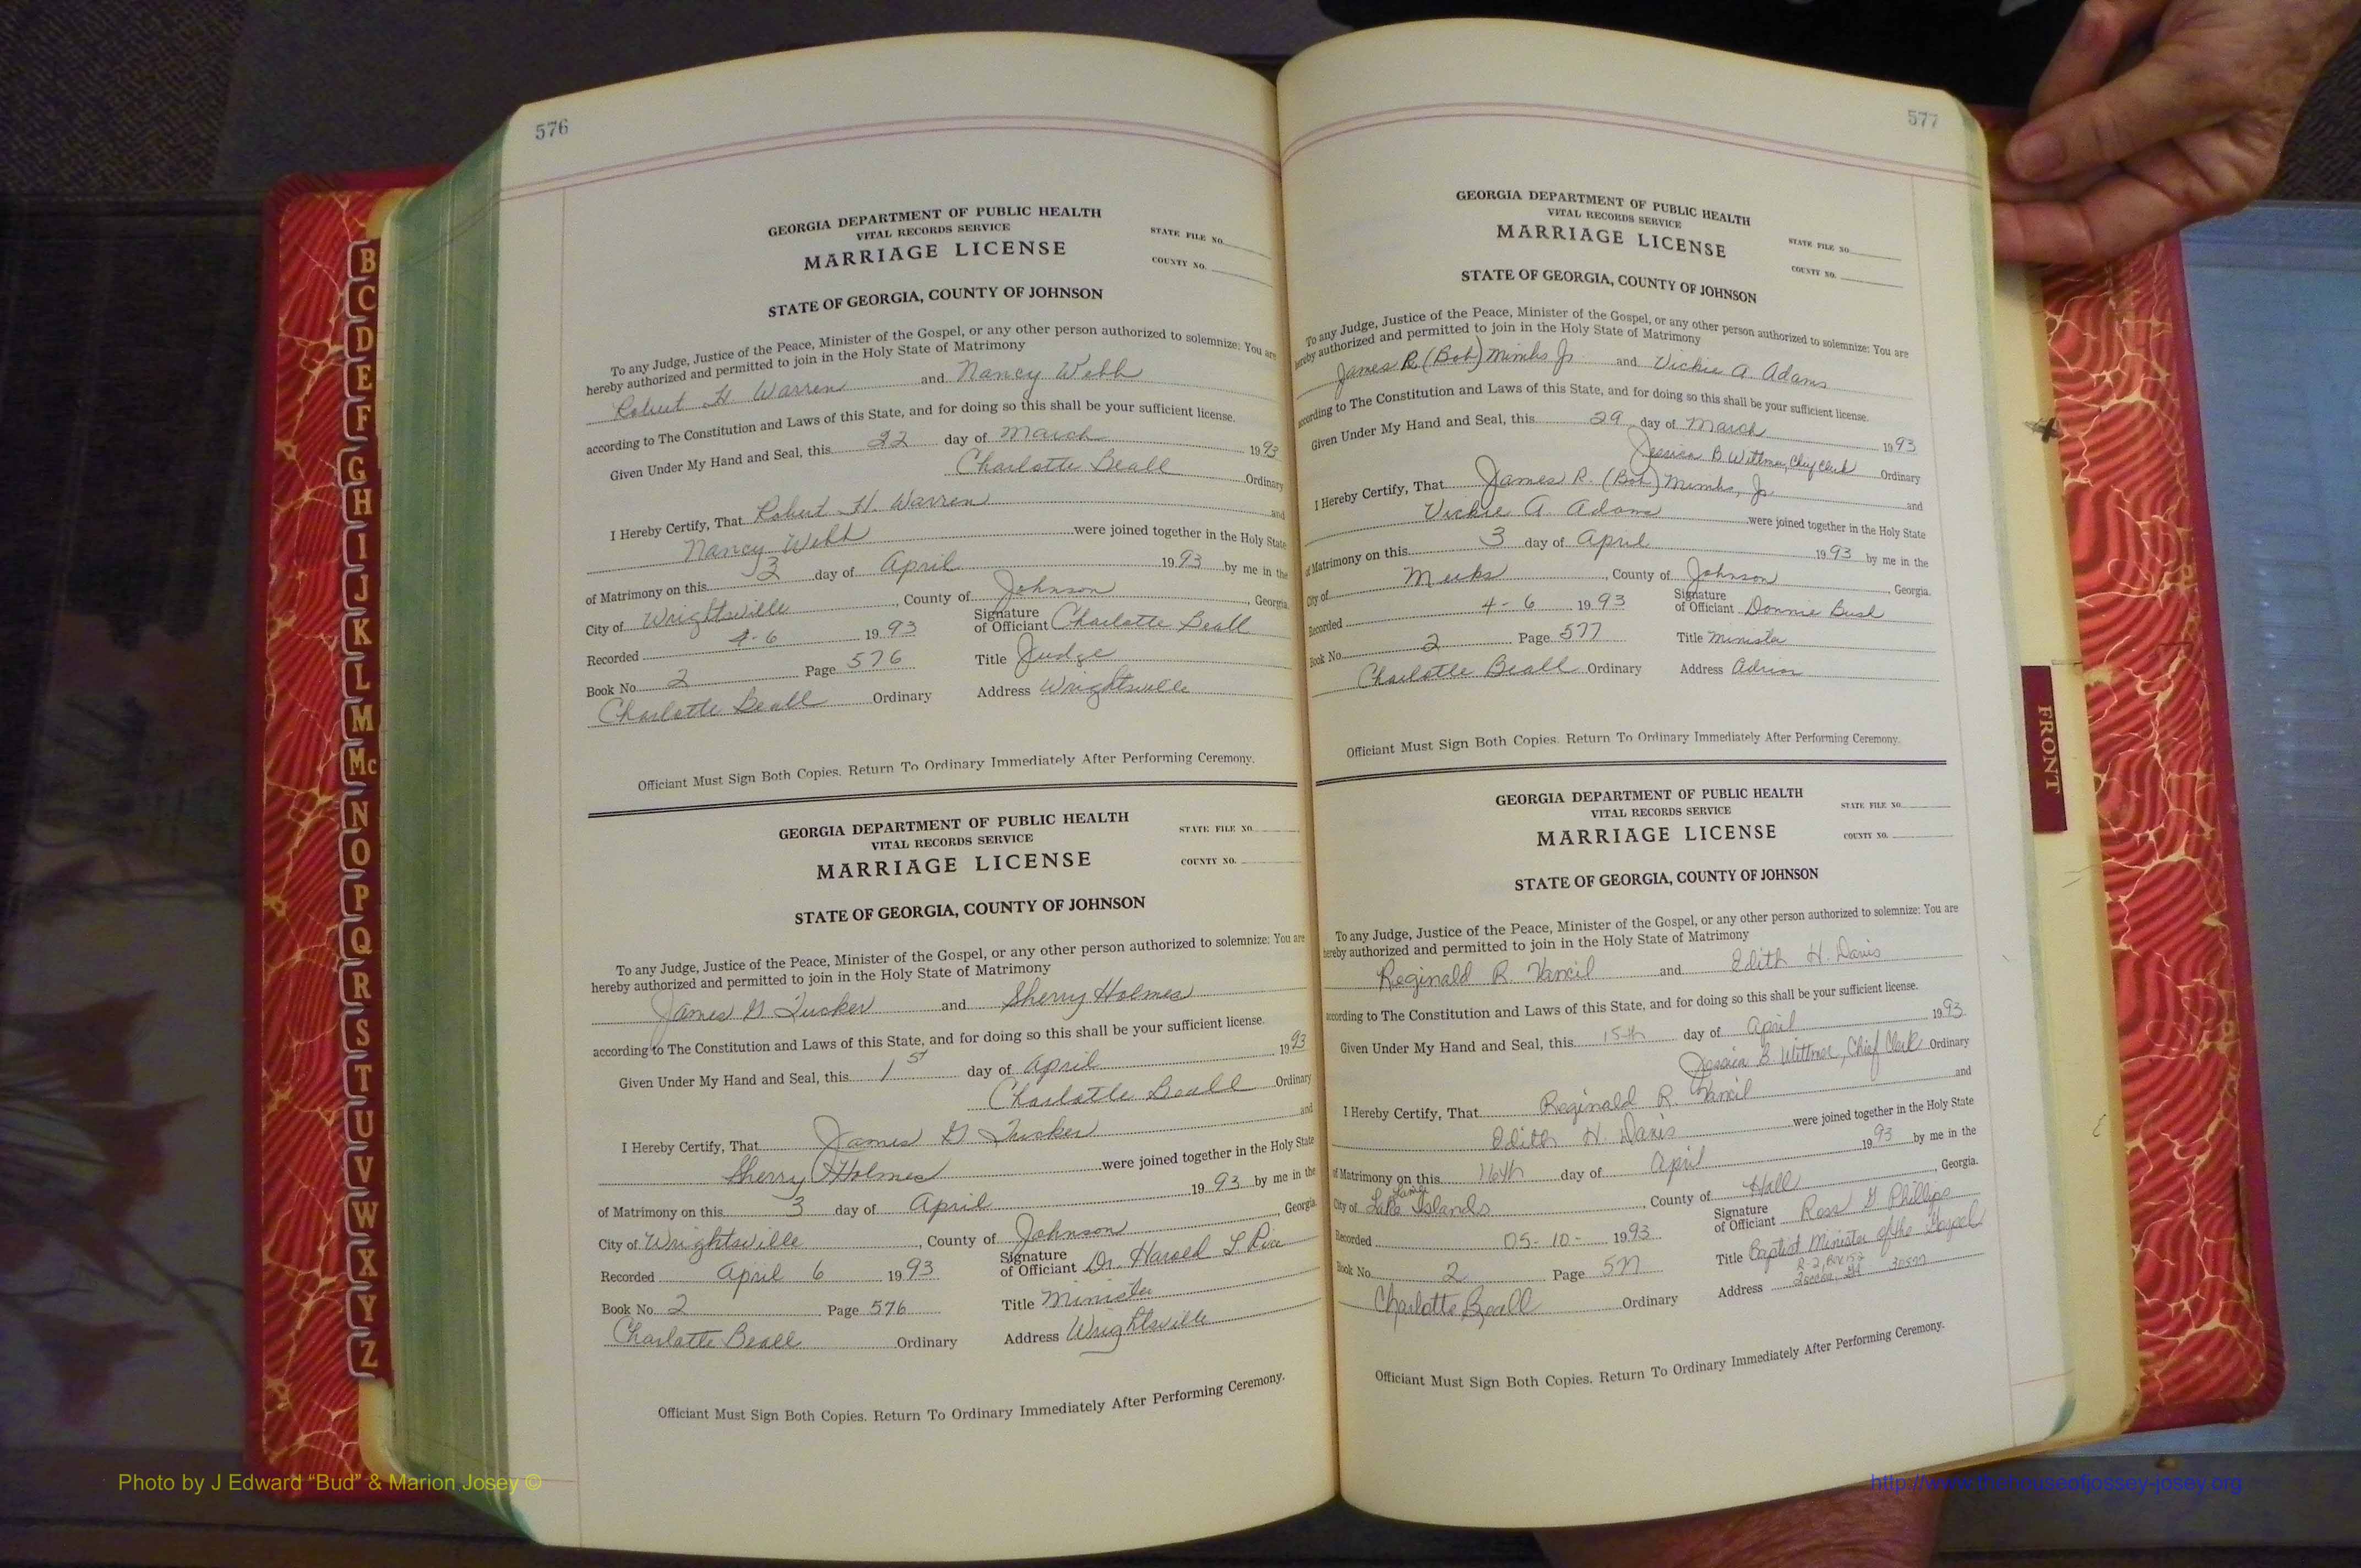 576
GEORGIA DEPARTMENT OF PUBLIC HEALTH
VITAL RECORDS SERVICE
MARRIAGE LICENSE
STATE FILE NO.
COUNTY NO.
STATE OF GEORGIA, COUNTY OF JOHNSON
To any Judge, Justice of the Peace, Minister of the Gospel, or any other person authorized to solemnize: You are
hereby authorized and permitted to join in the Holy State of Matrimony
Robert H. Warren and Nancy Webb
according to The Constitution and Laws of this State, and for doing so this shall be your sufficient license.
Given Under My Hand and Seal, this 22 day of March 1993
Charlotte Beall Ordinary
I Hereby Certify, That Robert H. Warren and
Nancy Webb were joined together in the Holy State
of Matrimony on this 3 day of April 1993 by me in the
City of Wrightsville, County of Johnson, Georgia.
Recorded 4-6 1993 Signature of Officiant Charlotte Beall
Book No. 2 Page 576 Title Judge
Charlotte Beall Ordinary Address Wrightsville
Officiant Must Sign Both Copies. Return To Ordinary Immediately After Performing Ceremony.
GEORGIA DEPARTMENT OF PUBLIC HEALTH
VITAL RECORDS SERVICE
MARRIAGE LICENSE
STATE FILE NO.
COUNTY NO.
STATE OF GEORGIA, COUNTY OF JOHNSON
To any Judge, Justice of the Peace, Minister of the Gospel, or any other person authorized to solemnize: You are
hereby authorized and permitted to join in the Holy State of Matrimony
James G Tucker and Sherry Holmes
according to The Constitution and Laws of this State, and for doing so this shall be your sufficient license.
Given Under My Hand and Seal, this 1st day of April 1993
Charlotte Beall Ordinary
I Hereby Certify, That James G Tucker and
Sherry Holmes were joined together in the Holy State
of Matrimony on this 3 day of April 1993 by me in the
City of Wrightsville, County of Johnson, Georgia.
Recorded April 6 1993 Signature of Officiant Dr. Harold L
Book No. 2 Page 576 Title Minister
Charlotte Beall Ordinary Address Wrightsville
Officiant Must Sign Both Copies. Return To Ordinary Immediately After Performing Ceremony.
577
GEORGIA DEPARTMENT OF PUBLIC HEALTH
VITAL RECORDS SERVICE
MARRIAGE LICENSE
STATE FILE NO.
COUNTY NO.
STATE OF GEORGIA, COUNTY OF JOHNSON
To any Judge, Justice of the Peace, Minister of the Gospel, or any other person authorized to solemnize: You are
hereby authorized and permitted to join in the Holy State of Matrimony
James R. (Bob) Mimbs Jr. and Vickie A. Adams
according to The Constitution and Laws of this State, and for doing so this shall be your sufficient license.
Given Under My Hand and Seal, this 29 day of March 1993
Jessica B Wittmer, Chief Clerk Ordinary
I Hereby Certify, That James R. (Bob) Mimbs, Jr. and
Vickie A. Adams were joined together in the Holy State
of Matrimony on this 3 day of April 1993 by me in the
City of Meeks, County of Johnson, Georgia.
Recorded 4-6 1993 Signature of Officiant Donnie Bush
Book No. 2 Page 577 Title Minister
Charlotte Beall Ordinary Address Adrian
Officiant Must Sign Both Copies. Return To Ordinary Immediately After Performing Ceremony.
GEORGIA DEPARTMENT OF PUBLIC HEALTH
VITAL RECORDS SERVICE
MARRIAGE LICENSE
STATE FILE NO.
COUNTY NO.
STATE OF GEORGIA, COUNTY OF JOHNSON
To any Judge, Justice of the Peace, Minister of the Gospel, or any other person authorized to solemnize: You are
hereby authorized and permitted to join in the Holy State of Matrimony
Reginald R. Vancil and Edith H. Davis
according to The Constitution and Laws of this State, and for doing so this shall be your sufficient license.
Given Under My Hand and Seal, this 15th day of April 1993
Jessica B. Wittmer, Chief Clerk Ordinary
I Hereby Certify, That Reginald R. Vancil and
Edith H. Davis were joined together in the Holy State
of Matrimony on this 16th day of April 1993 by me in the
City of Lake Lanier Islands, County of Hall, Georgia.
Recorded 05-10- 1993 Signature of Officiant Ross G Phillips
Book No. 2 Page 577 Title Baptist Minister of the Gospel
Charlotte Beall Ordinary Address R-2, Box 152 Toccoa, GA 30577
Officiant Must Sign Both Copies. Return To Ordinary Immediately After Performing Ceremony.
B
C
D
E
F
G
H
I
J
K
L
M
Mc
N
O
P
Q
R
S
T
U
V
W
X
Y
Z
FRONT
Photo by J Edward "Bud" & Marion Josey ©
http://www.thehouseofjossey-josey.org